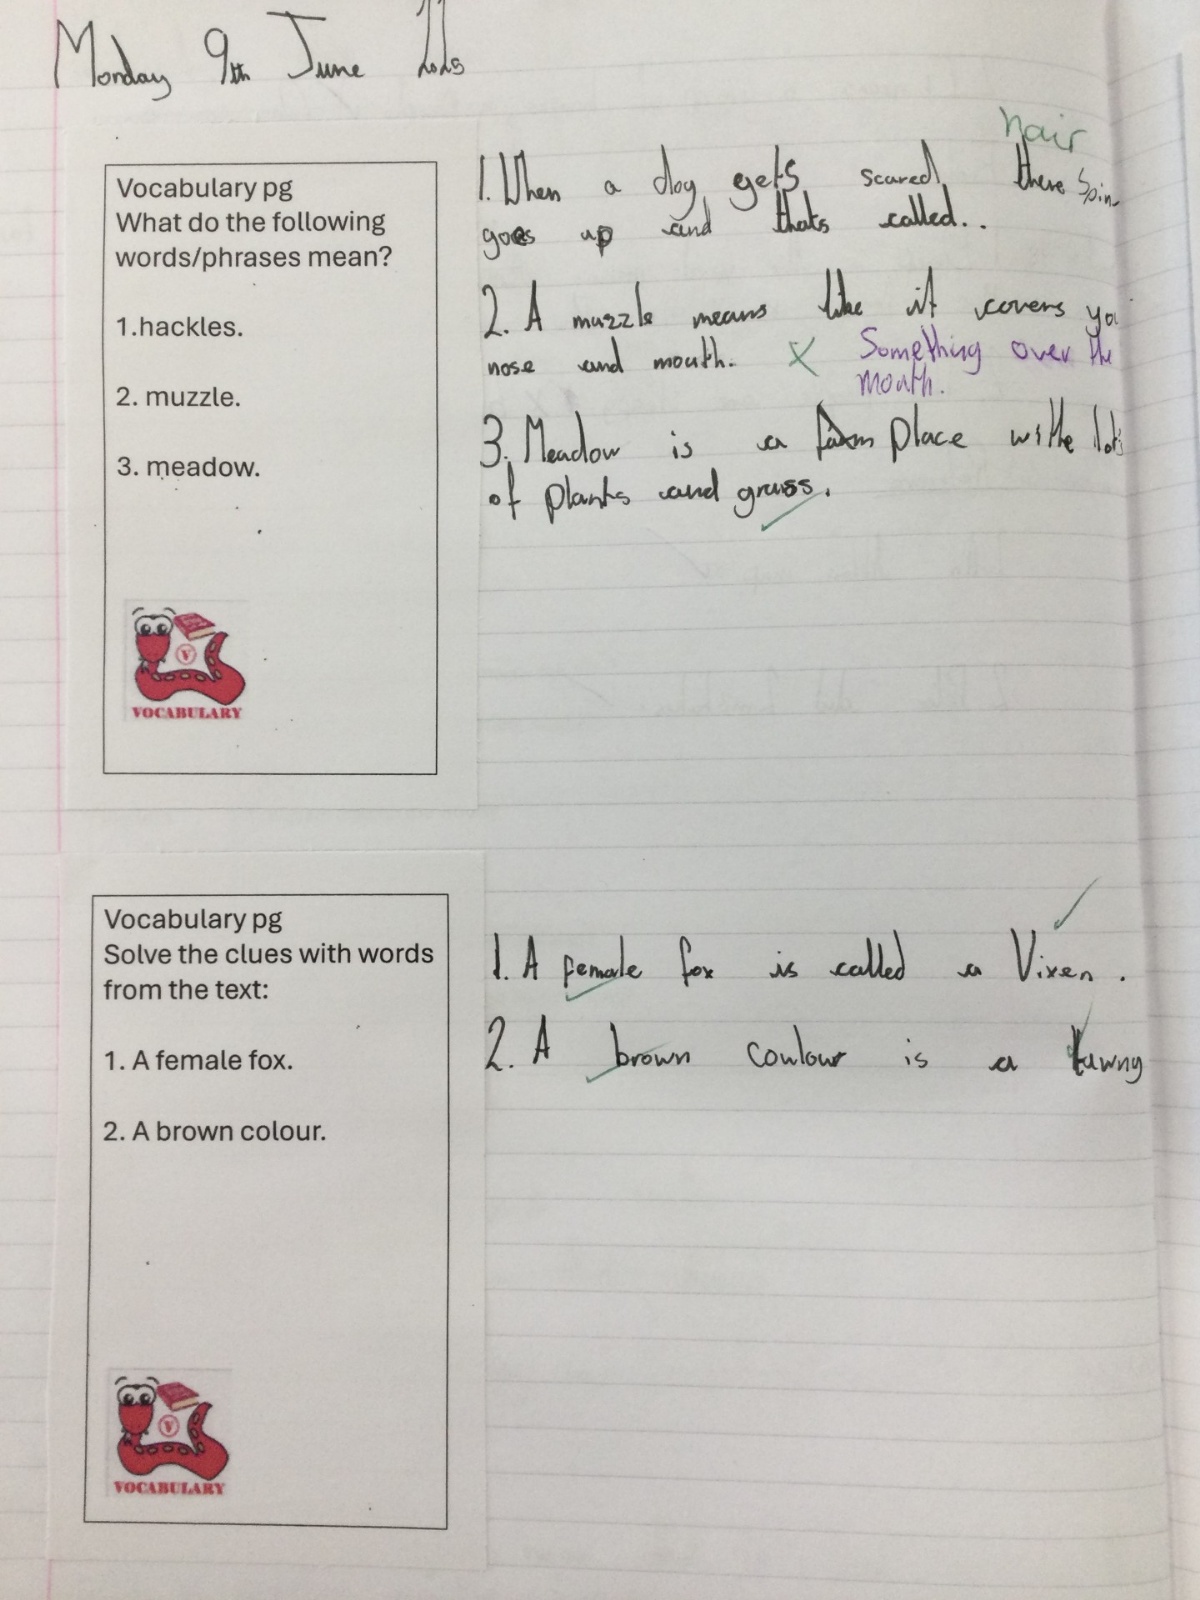 Monday 9th June 2025
Vocabulary pg
What do the following
words/phrases mean?
1.hackles.
2. muzzle.
3. meadow.
VOCABULARY
hair
1. When a dog gets scared, there Spin
goes up and thats called...
2. A muzzle means like it covers you
nose and mouth. X Something over the
mouth.
3. Meadow is a place withe lots
of plants and grass.
Vocabulary pg
Solve the clues with words
from the text:
1. A female fox.
2. A brown colour.
V
VOCABULARY
1. A female fox is called a Vixen.
2. A brown coulour is a tawny